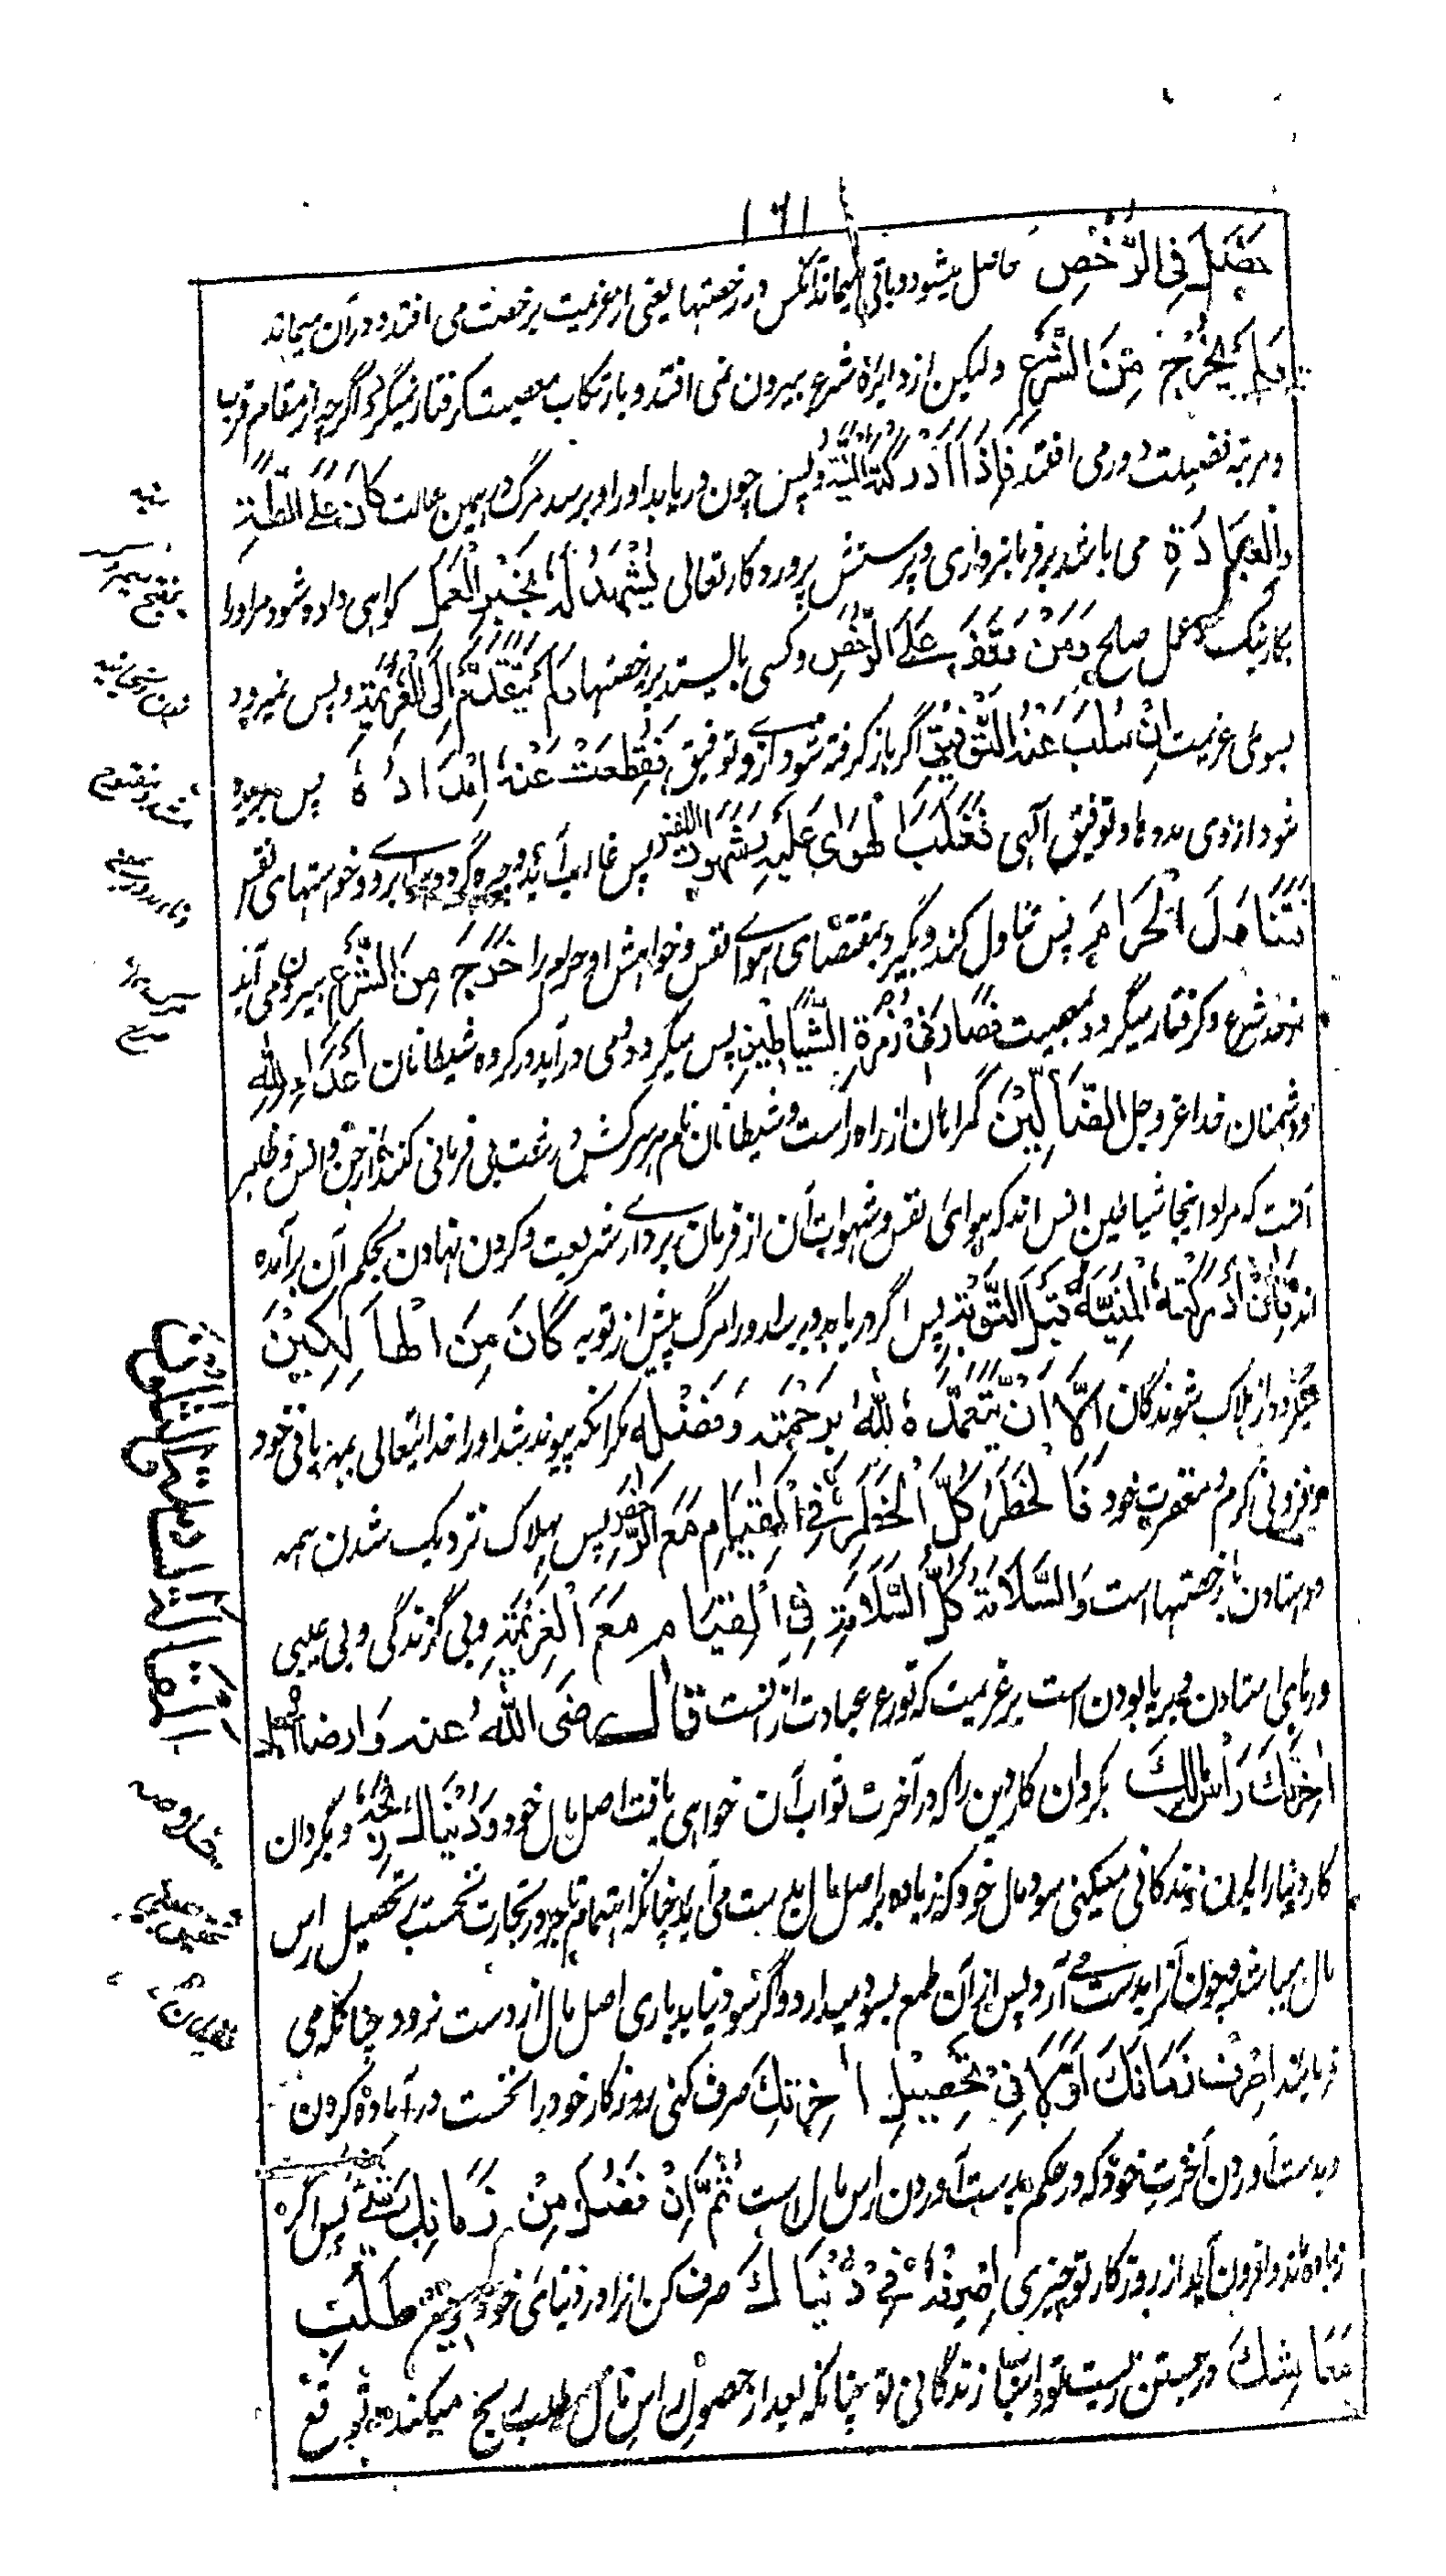 ١٦١
حَصَلَ فِی الرُّخَصِ حاصل میشود و باقی میماند آنکس در رخصتها یعنی از عزیمت برخصت می افتد و در آن میماند
وَلَمْ یَخْرُجْ مِنَ الشَّرْعِ ولیکن از دایرۀ شرع بیرون نمی افتد و بارتکاب معصیت گرفتار نمیگردد اگرچه از مقام قرب
و مرتبه فضیلت دور می افتد فَاِذَا اَدْرَکَتْهُ الْمَنِیَّةُ پس چون دریابد او را و برسد مرگ در همین حالت کَانَ عَلَی الطَّاعَةِ
وَالْعِبَادَةِ می باشد بر فرمانبرداری و پرستش پروردگار تعالی یُشْهَدُ لَهُ بِخَیْرِ الْعَمَلِ گواهی داده شود مر او را
بکار نیک و عمل صالح وَمَنْ وَقَفَ عَلَی الرُّخَصِ و کسی بایستد بر رخصتها وَلَمْ یَتَقَدَّمْ اِلَی الْعَزِیْمَةِ و پس نمیرود
بسوی عزیمت اِنْ سُلِبَ عَنْهُ التَّوْفِیْقُ اگر باز گرفته شود از و توفیق فَقُطِعَتْ عَنْهُ اِمْدَادُهُ پس بریده
شود از وی مددها و توفیق آلهی فَغَلَبَ الْهَوٰی عَلَیْهِ وَشَهَوَاتُ النَّفْسِ پس غالب آید و چیره گردد هوا بر و و خواستهای نفس
فَتَنَاوَلَ الْحَرَامَ پس تناول کند و بگیرد بمقتضای هوای نفس و خواهش او حرام را خَرَجَ مِنَ الشَّرْعِ بیرون می آید
از حد شرع و گرفتار میگردد بمعصیت فَصَارَ فِیْ زُمْرَةِ الشَّیَاطِیْنِ پس میگردد و می درآید در گروه شیطانان اَعْدَاءِ اللّٰهِ
و دشمنان خدا عز وجل الضَّالِّیْنَ گمراهان از راه راست و شیطانان نام هر سرکش و زشت بی فرمانی کننده از جن و انس و ظاهر
آنست که مراد اینجا شیاطین انس اند که بهوای نفس و شهوات آن از فرمان برداری شریعت و گردن نهادن بحکم آن برآمده
اند فَاِنْ اَدْرَکَتْهُ الْمَنِیَّةُ قَبْلَ التَّوْبَةِ پس اگر دریابد و برسد او را مرگ پیش از توبه کَانَ مِنَ الْهَالِکِیْنَ
میگردد از هلاک شوندگان اِلَّا اَنْ یَتَغَمَّدَهُ اللّٰهُ بِرَحْمَتِهِ وَفَضْلِهِ مگر آنکه بپوشد او را خدایتعالی بمهربانی خود
و فزونی کرم و مغفرت خود فَالْخَطَرُ کُلُّ الْخَطَرِ فِی الْقِیَامِ مَعَ الرُّخَصِ پس بهلاک نزدیک شدن همه
در ایستادن با رخصتها است وَالسَّلَامَةُ کُلُّ السَّلَامَةِ فِی الْقِیَامِ مَعَ الْعَزِیْمَةِ و بی گزندگی و بی عیبی
در پای استادن و برپا بودن است بر عزیمت که تورع عبادت از آنست قال رضی الله عنه وارضاه
اٰخِرَتَکَ رَأْسَ مَالِکَ بگردان کار دین را که در آخرت ثواب آن خواهی یافت اصل مال خود وَدُنْیَاکَ رِبْحَهُ و بگردان
کار دنیا را که بدان زندگانی میکنی سود مال خود که زیاده بر اصل مال بدست می آید چنانکه اهتمام تاجر در تجارت نخست بتحصیل راس
مال میباشد و چون آنرا بدست می آرد پس از آن طمع بسود میدارد و اگر سود نیاید باری اصل مال از دست نرود چنانکه می
فرمایند اِصْرِفْ زَمَانَکَ اَوَّلًا فِیْ تَحْصِیْلِ اٰخِرَتِکَ صرف کنی روزگار خود را نخست در آماده کردن
و بدست آوردن آخرت خود که در حکم بدست آوردن راس مال است ثُمَّ اِنْ فَضَلَ مِنْ زَمَانِکَ شَیْءٌ پس اگر
زیاده ماند و افزون آید از روزگار تو چیزی اِصْرِفْهُ فِیْ دُنْیَاکَ صرف کن آنرا در دنیای خود وَفِیْ طَلَبِ
مَعَاشِکَ در جستن زیست تو و اسباب زندگانی تو چنانکه بعد از حصول راس مال طلب ربح میکنند و توقع
المقالة السادسة والثلاثون